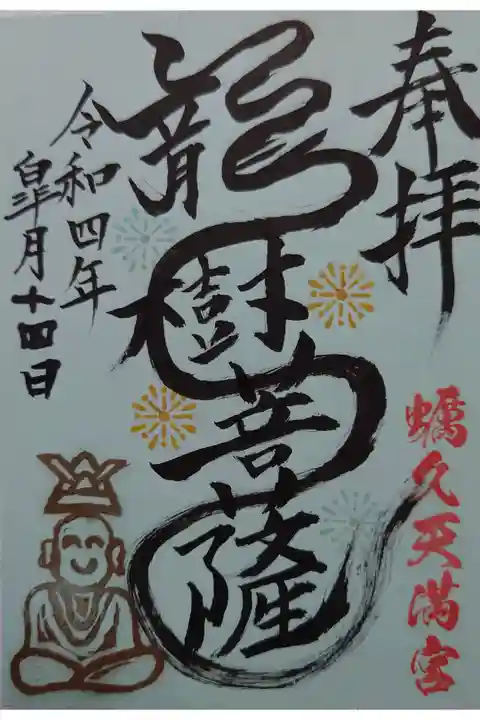 奉拝
蠣久天満宮
龍樹菩薩
令和四年
皐月十四日